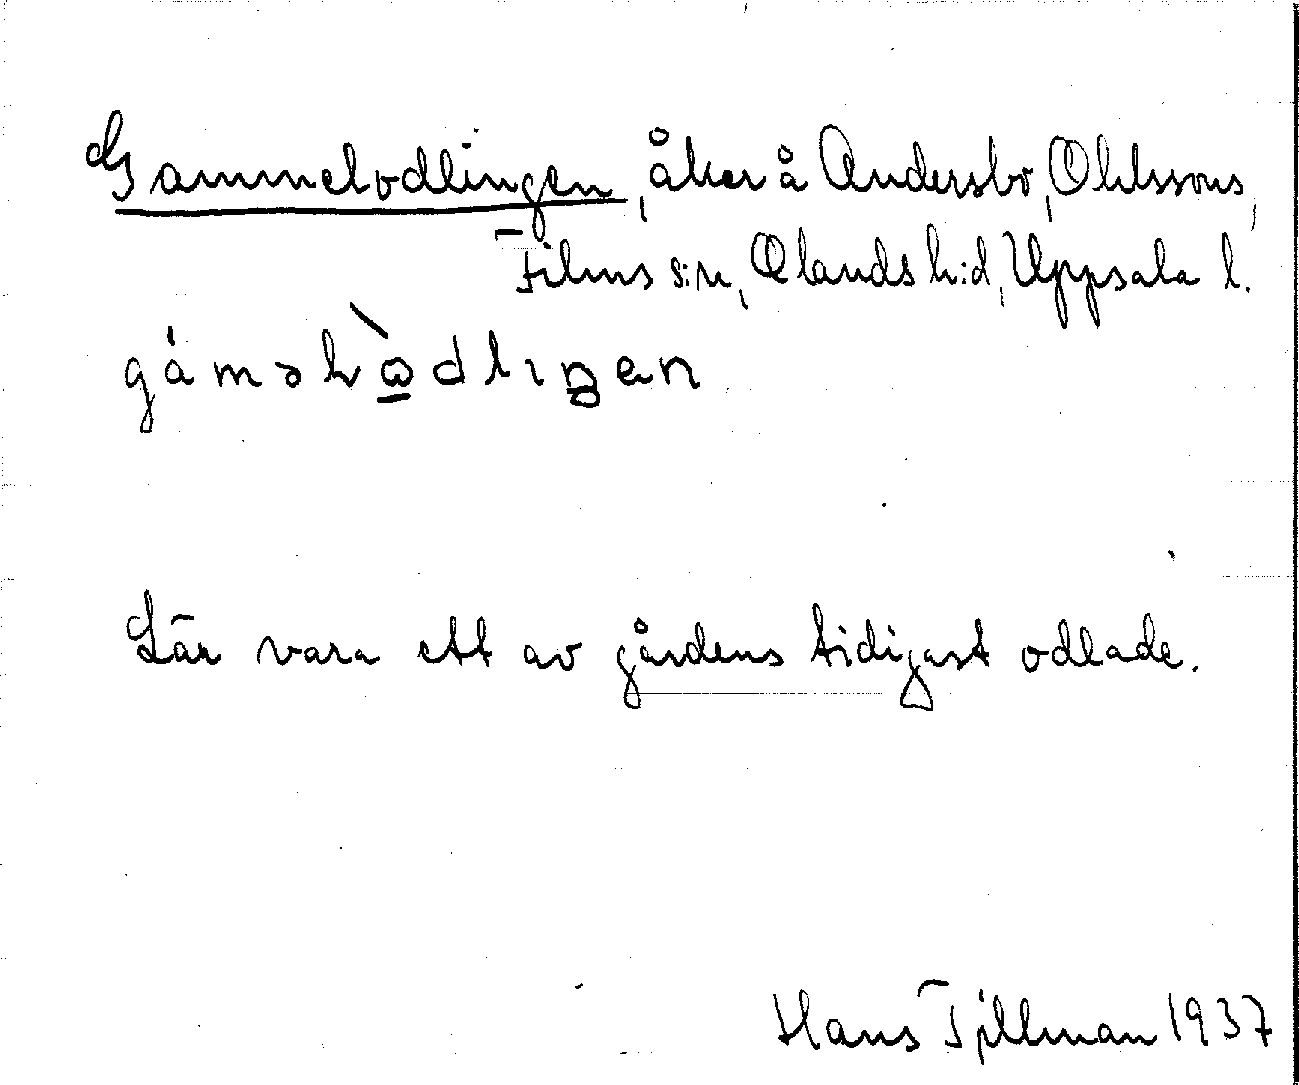 Gammelodlingen, åker å Andersbo, Ohlssons,
Films sn, Olands hd, Uppsala l.
gáməlòdlıŋen
Lär vara ett av gårdens tidigast odlade.
Hans Tjillman 1937